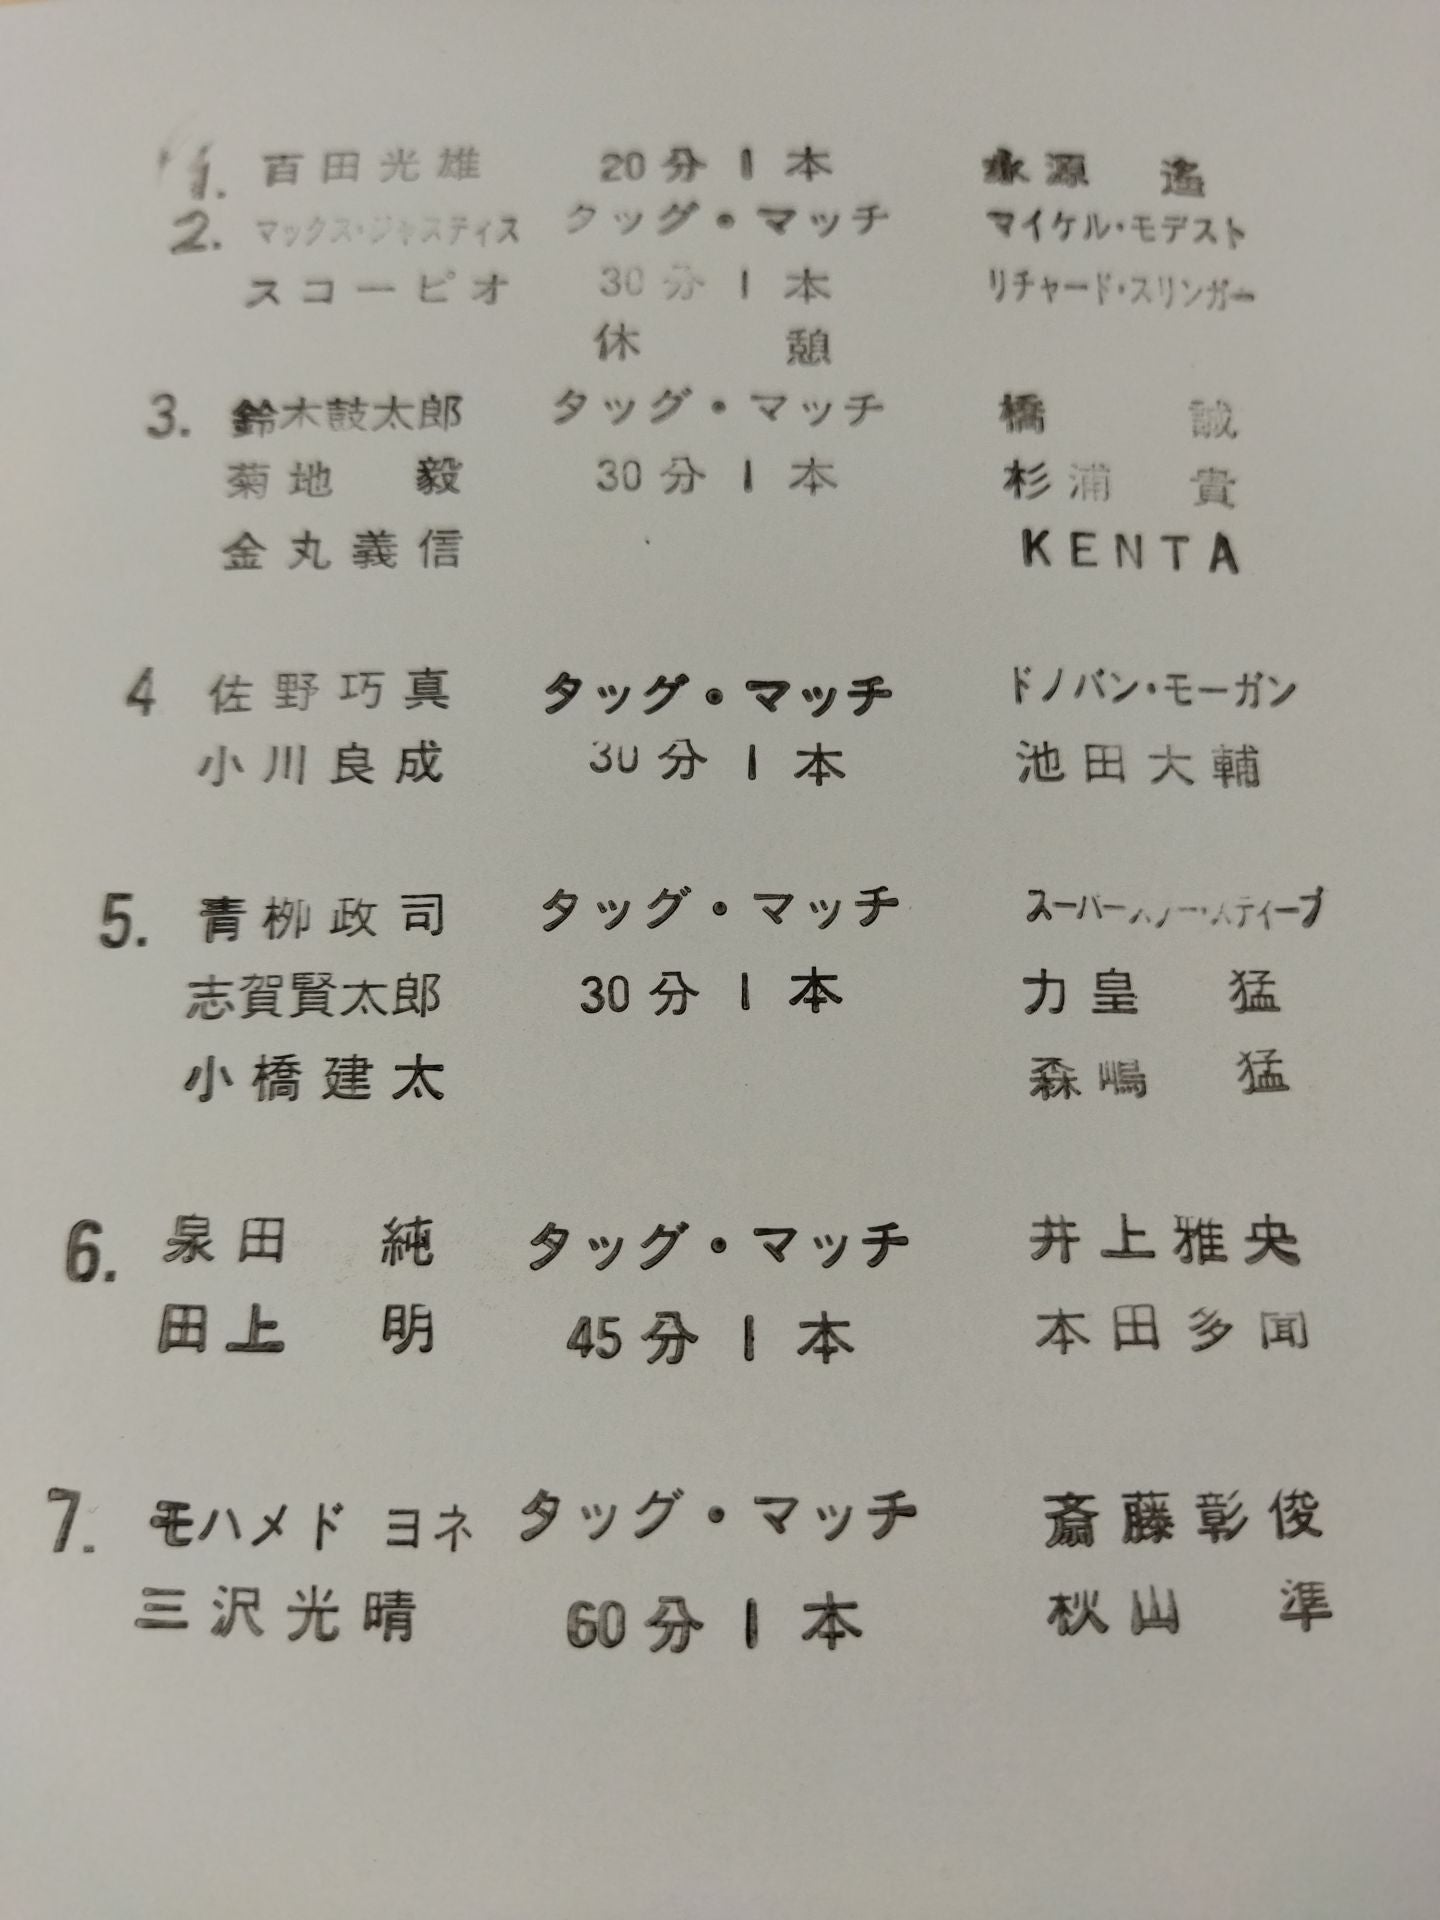 1. 百田光雄 20分1本 永源 遙
2. マックス・ジャスティス タッグ・マッチ マイケル・モデスト
スコーピオ 30分1本 リチャード・スリンガー
休 憩
3. 鈴木鼓太郎 タッグ・マッチ 橋 誠
菊地 毅 30分1本 杉浦 貴
金丸義信 KENTA
4 佐野巧真 タッグ・マッチ ドノバン・モーガン
小川良成 30分1本 池田大輔
5. 青柳政司 タッグ・マッチ スーパースター・スティーブ
志賀賢太郎 30分1本 力皇 猛
小橋建太 森嶋 猛
6. 泉田 純 タッグ・マッチ 井上雅央
田上 明 45分1本 本田多聞
7. モハメド ヨネ タッグ・マッチ 斎藤彰俊
三沢光晴 60分1本 秋山 準